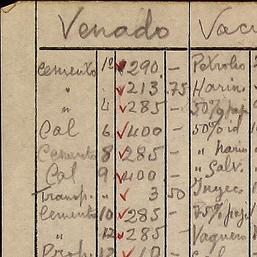 Venado
Cemento 12 290 — Petroleo
" 213.75 Harin
" 4 285 — 50% pap
Cal 6 400 — 50% id
Cemento 8 285 — " harin
Cal 9 400 — " Salv.
Transp. " 3 50
Cemento 10 285 — 75% pap
" 12 285 Vaquero